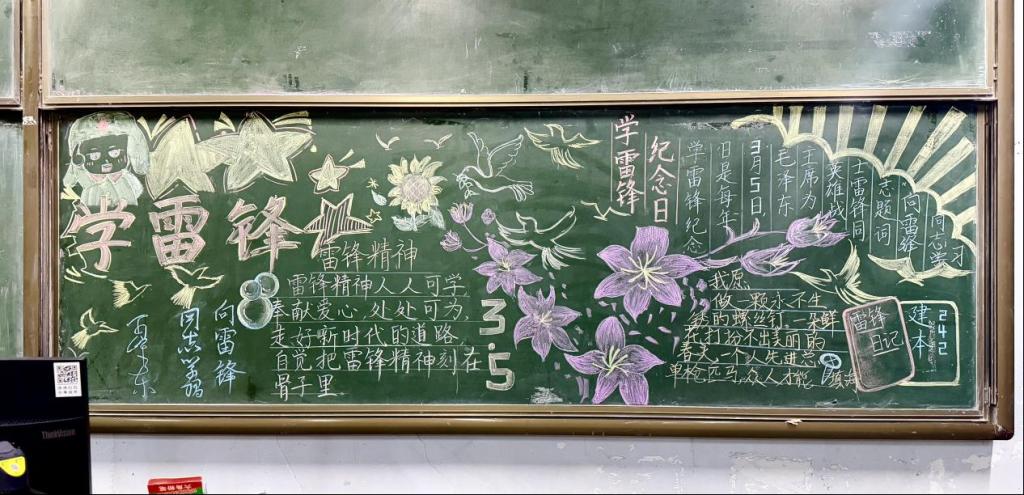 学雷锋
雷锋精神
雷锋精神人人可学
奉献爱心,处处可为,
走好新时代的道路
自觉把雷锋精神刻在
骨子里
向雷锋
同志学习
毛泽东
3.5
学雷锋
纪念日
学雷锋纪念
日是每年
3月5日
毛泽东
主席为
英雄战
士雷锋同
志题词
向雷锋
同志学习
我愿
做一颗永不生
锈的螺丝钉 一朵鲜
花打扮不出美丽的
春天,一个人先进总
单枪匹马,众人才能
雷锋
日记
建本
242
ThinkVision